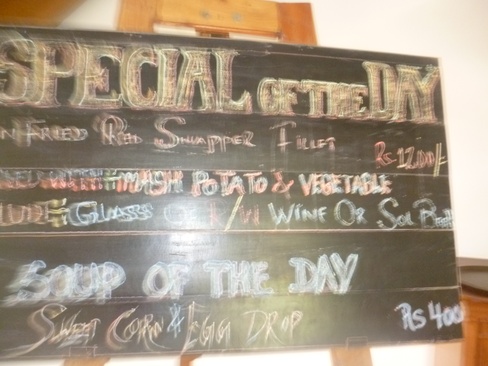 SPECIAL OF THE DAY
N FRIED RED SNAPPER FILLET Rs 1200/-
WITH MASH POTATO & VEGETABLE
GLASS OF WINE OR
SOUP OF THE DAY
SWEET CORN & EGG DROP Rs 400